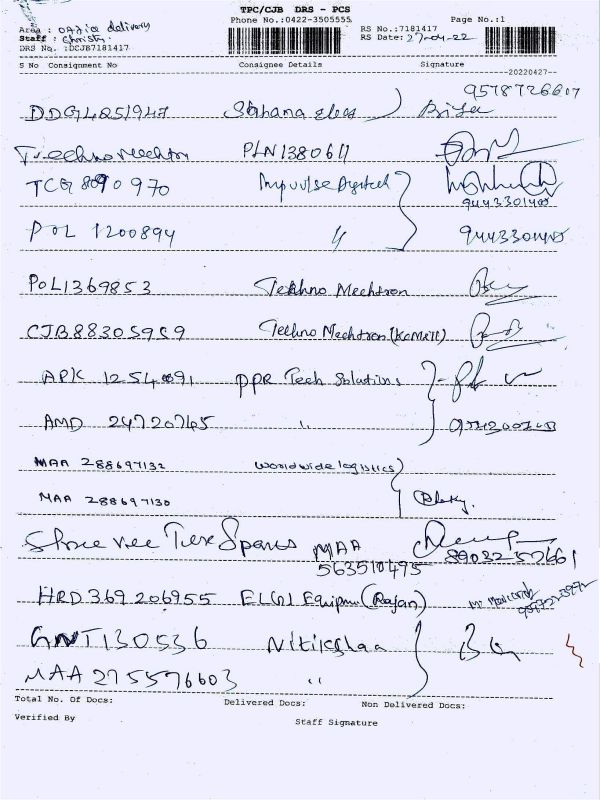 TPC/CJB DRS - PCS
Phone No.:0422-3505555 Page No.:1
Area : Office delivery
Staff : Christy
DRS No. :DCJB7181417
RS No.:7181417
RS Date: 27-04-22
S No Consignment No Consignee Details Signature
--20220427--
9578726607
DDG4251947
PLN1380611
TCG8090970 Impulse Digitech
9443301408
POL 1200894 "
POL1369853 Tekhno Mechtron
CJB88305959 Techno Mechtron
APK PPR Tech Solutions
AMD 24720745 "
MAA 288697132 Worldwide logistics
MAA 288697130
Shree vee Tex Spares MAA
563510495
HRD369206955 ELGI Equipm (Rajan)
GNT130536 Nitikshaa
MAA 275576603 "
Total No. Of Docs: Delivered Docs: Non Delivered Docs:
Verified By Staff Signature